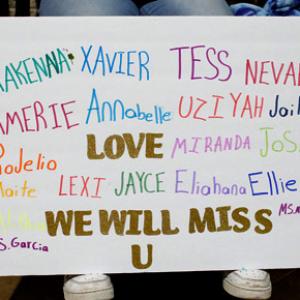 MAKENNA XAVIER TESS NEVAE
AMERIE Annabelle UZIYAH Jail
LOVE MIRANDA JoS
Rodelio
LEXI JAYCE Eliahana Ellie
WE WILL MISS MS.
S. Garcia U